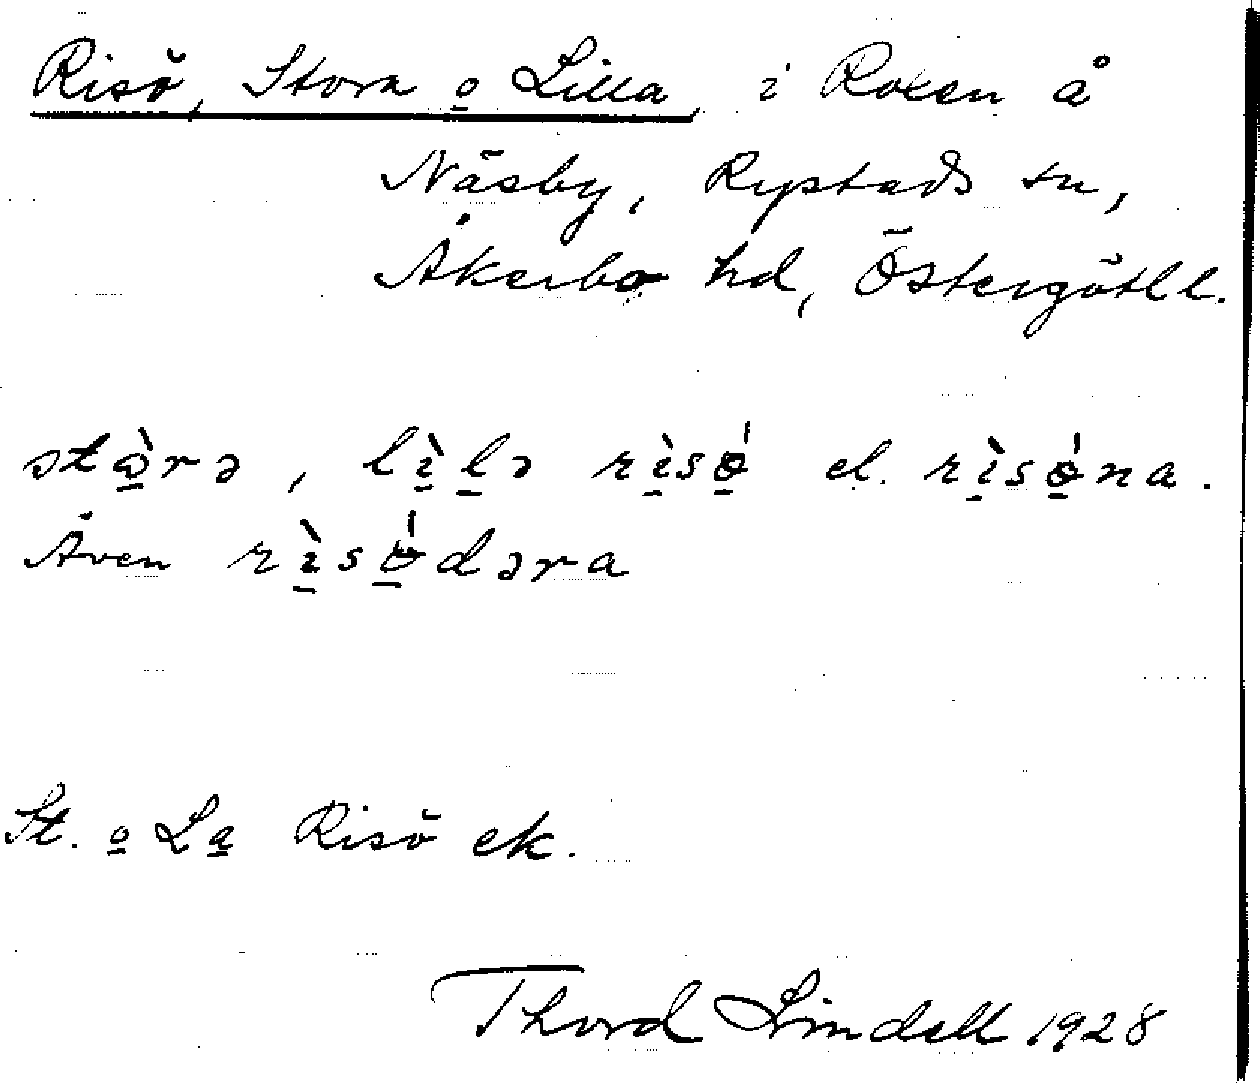 Risö, Stora o Lilla, i Roxen å
Näsby, Rystads sn,
Åkerbo hd, Östergötl l.
stɷ̀rə, lìlə rìsǿ el. rìsǿna.
Även rìsǿdəra
St. o La Risö ek.
Thord Lindell 1928